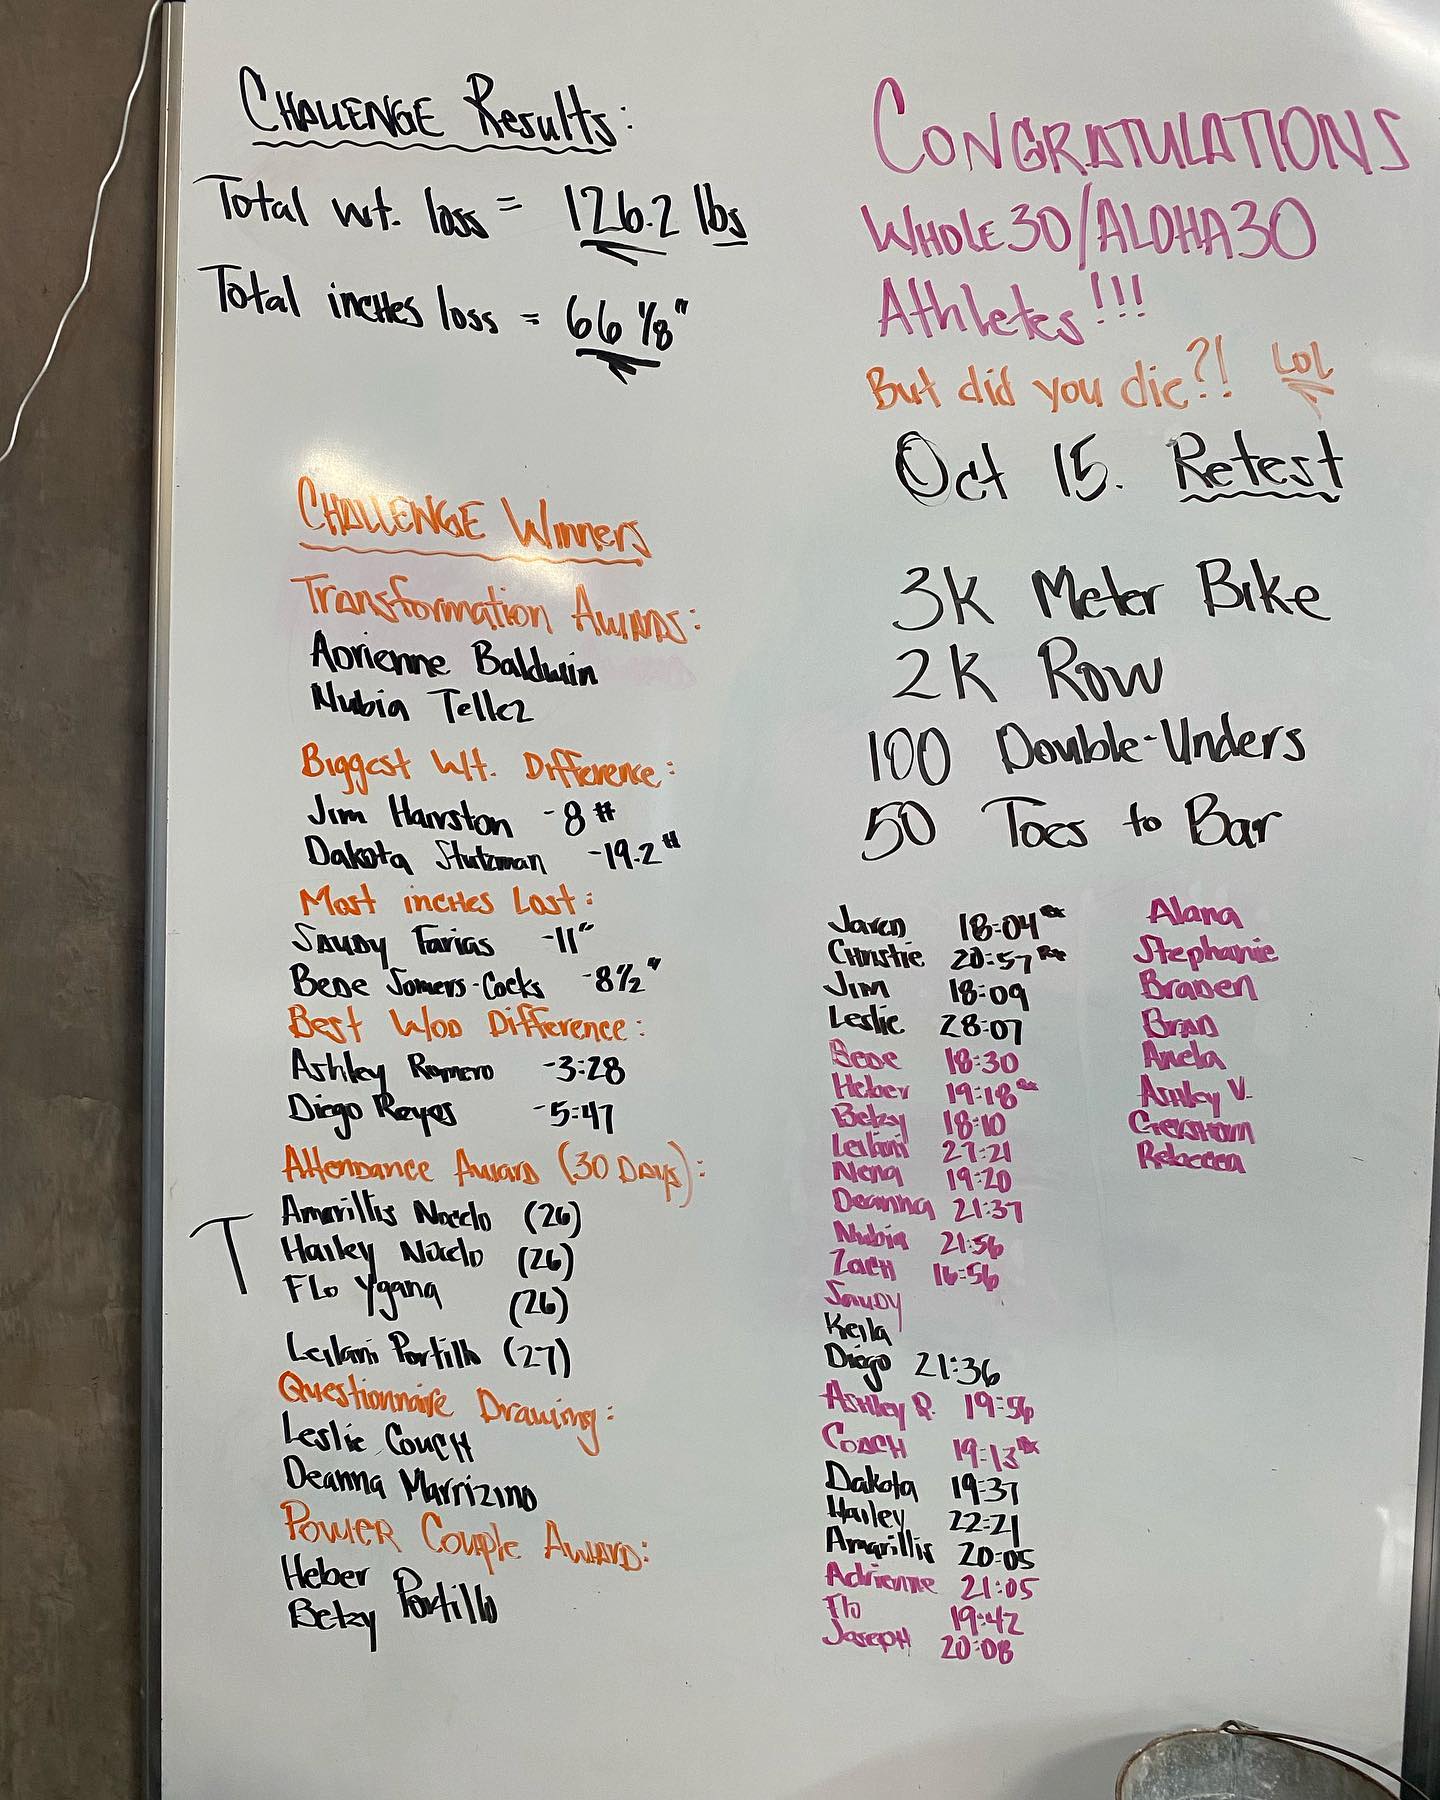 CHALLENGE Results:
Total wt. loss = 126.2 lbs
Total inches loss = 66 1/8"
CHALLENGE Winners
Transformation Awards:
Adrienne Baldwin
Nubia Tellez
Biggest Wt. Difference:
Jim Hairston -8#
Dakota Stutzman -19.2#
Most inches Lost:
Saudy Farias -11"
Bede Somers-Cocks -8 1/2"
Best WOD Difference:
Ashley Romero -3:28
Diego Reyes -5:47
Attendance Award (30 Days):
T
Amarillis Nocelo (26)
Hailey Nocelo (26)
Flo Ygana (26)
Leilani Portillo (27)
Questionnaire Drawing:
Leslie Couch
Deanna Marrizino
Power Couple Award:
Heber
Betzy Portillo
CONGRATULATIONS
WHOLE30/ALOHA30
Athletes!!!
But did you die?! LOL
Oct 15. Retest
3K Meter Bike
2K Row
100 Double-Unders
50 Toes to Bar
Jaren 18:04 Rx
Christie 20:57 Rx
Jim 18:09
Leslie 28:07
Bede 18:30
Heber 19:18 Rx
Betzy 18:10
Leilani 27:21
Nena 19:20
Deanna 21:37
Nubia 21:56
Zach 16:56
Saudy
Keila
Diego 21:36
Ashley R. 19:56
COACH 19:13 Rx
Dakota 19:37
Hailey 22:21
Amarillis 20:05
Adrienne 21:05
Flo 19:42
Joseph 20:08
Alana
Stephanie
Braden
Brad
Anela
Ashley V.
Gershom
Rebecca